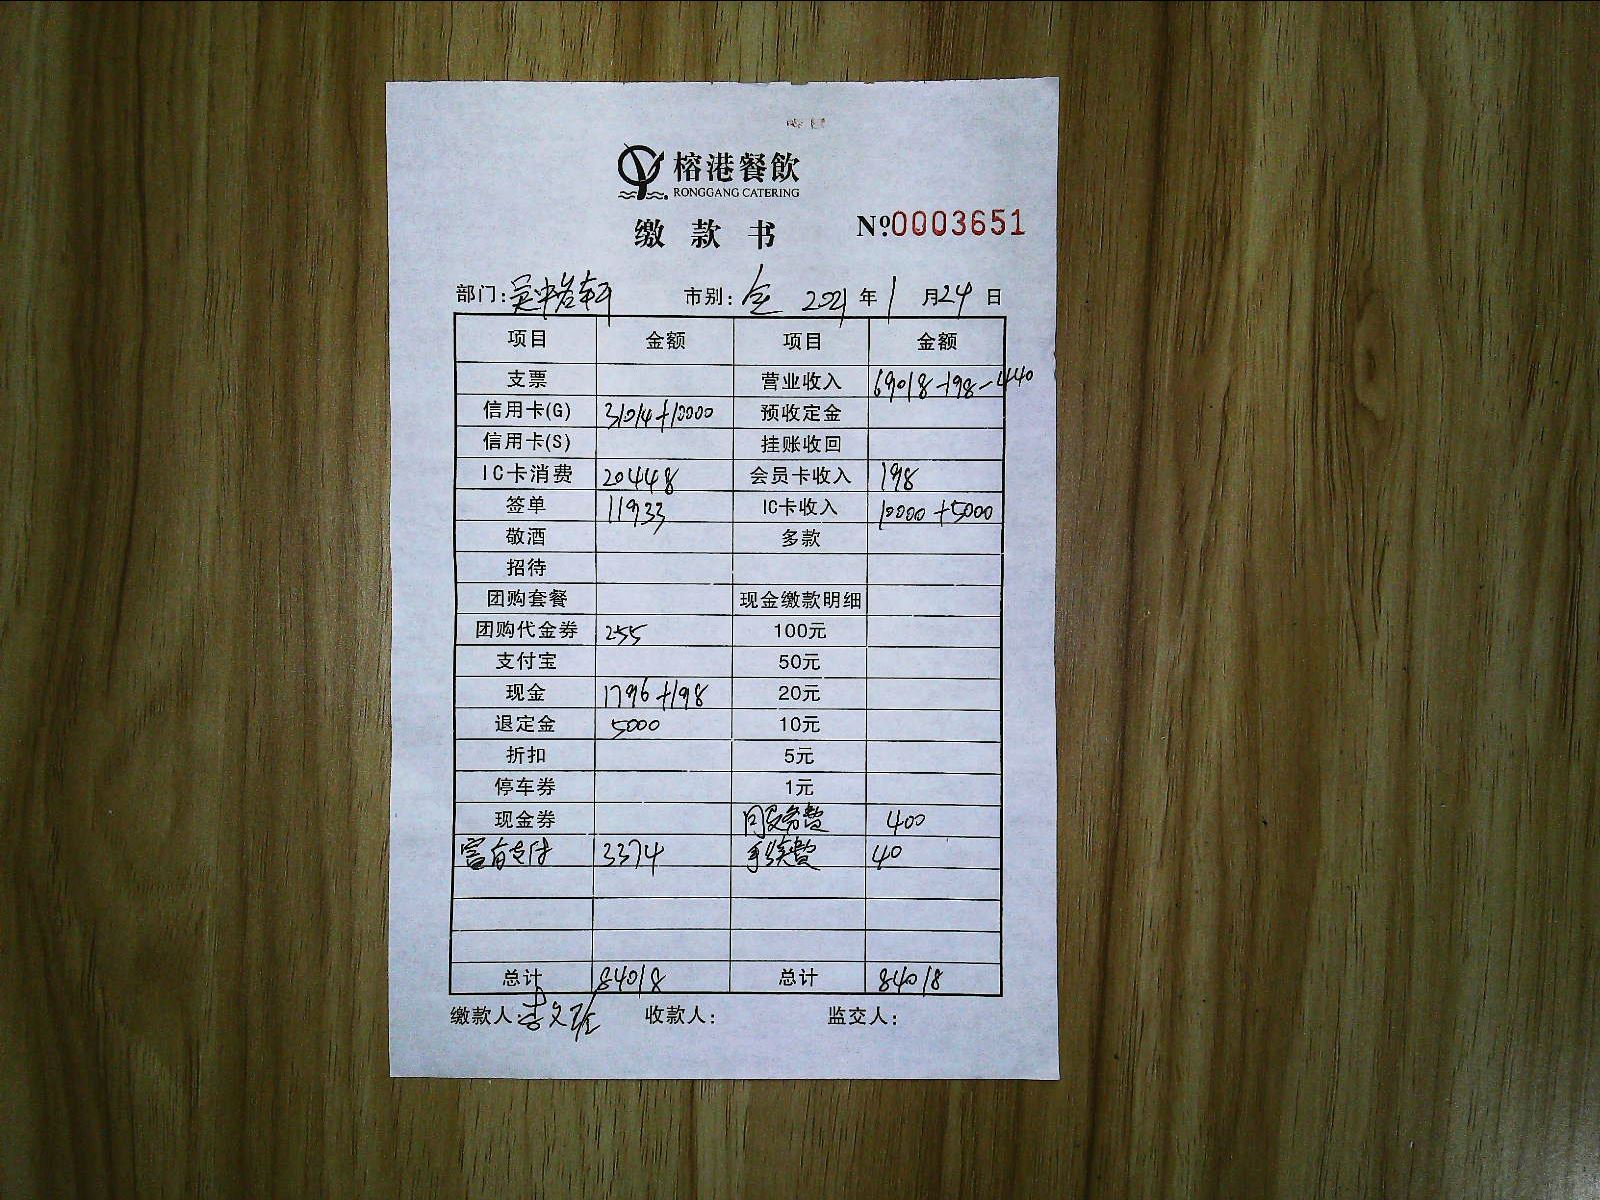 榕港餐飲
RONGGANG CATERING
缴款书 №0003651
部门: 市别:全 2021年1月24日
项目 金额 项目 金额
支票 营业收入 69018-198-440
信用卡(G) 31014+10000 预收定金
信用卡(S) 挂账收回
IC卡消费 20448 会员卡收入 198
签单 11933 IC卡收入 10000+5000
敬酒 多款
招待
团购套餐 现金缴款明细
团购代金券 255 100元
支付宝 50元
现金 1796+198 20元
退定金 5000 10元
折扣 5元
停车券 1元
现金券 服务费 400
富有支付 3374 手续费 40
总计 84018 总计 84018
缴款人:李文 收款人: 监交人: